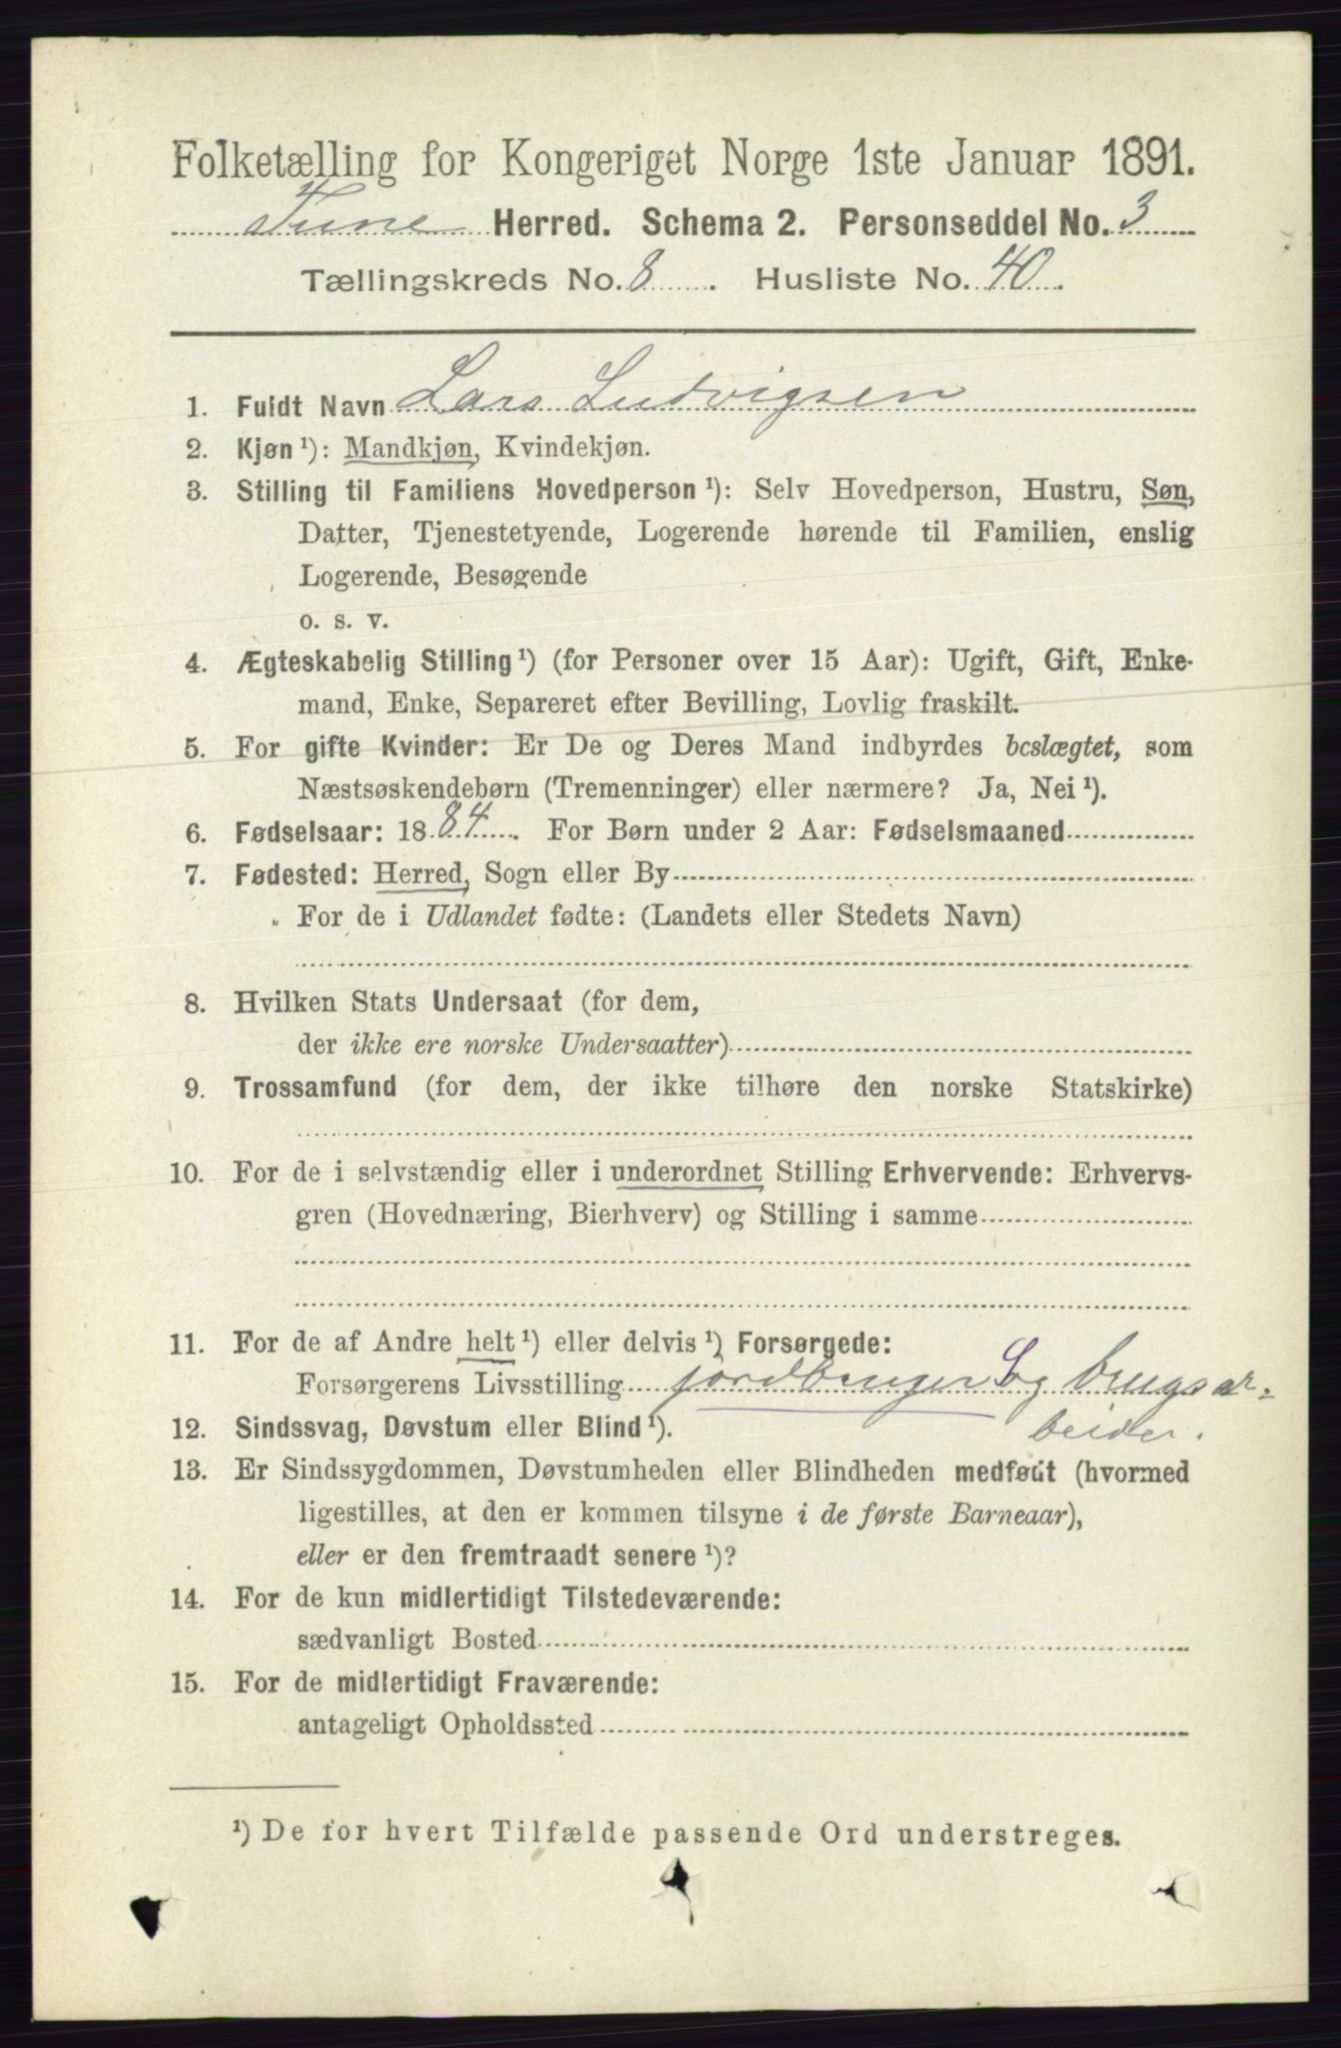 Folketælling for Kongeriget Norge 1ste Januar 1891.
Tune Herred. Schema 2. Personseddel No. 3
Tællingskreds No. 8. Husliste No. 40.
1. Fuldt Navn Lars Ludvigsen
2. Kjøn ¹): Mandkjøn, Kvindekjøn.
3. Stilling til Familiens Hovedperson ¹): Selv Hovedperson, Hustru, Søn,
Datter, Tjenestetyende, Logerende hørende til Familien, enslig
Logerende, Besøgende
o. s. v.
4. Ægteskabelig Stilling ¹) (for Personer over 15 Aar): Ugift, Gift, Enke-
mand, Enke, Separeret efter Bevilling, Lovlig fraskilt.
5. For gifte Kvinder: Er De og Deres Mand indbyrdes beslægtet, som
Næstsøskendebørn (Tremenninger) eller nærmere? Ja, Nei ¹).
6. Fødselsaar: 1884. For Børn under 2 Aar: Fødselsmaaned
7. Fødested: Herred, Sogn eller By
For de i Udlandet fødte: (Landets eller Stedets Navn)
8. Hvilken Stats Undersaat (for dem,
der ikke ere norske Undersaatter)
9. Trossamfund (for dem, der ikke tilhøre den norske Statskirke)
10. For de i selvstændig eller i underordnet Stilling Erhvervende: Erhvervs-
gren (Hovednæring, Bierhverv) og Stilling i samme
11. For de af Andre helt ¹) eller delvis ¹) Forsørgede:
Forsørgerens Livsstilling jordbruger og brugsar-
beider.
12. Sindssvag, Døvstum eller Blind ¹).
13. Er Sindssygdommen, Døvstumheden eller Blindheden medfødt (hvormed
ligestilles, at den er kommen tilsyne i de første Barneaar),
eller er den fremtraadt senere ¹)?
14. For de kun midlertidigt Tilstedeværende:
sædvanligt Bosted
15. For de midlertidigt Fraværende:
antageligt Opholdssted
¹) De for hvert Tilfælde passende Ord understreges.